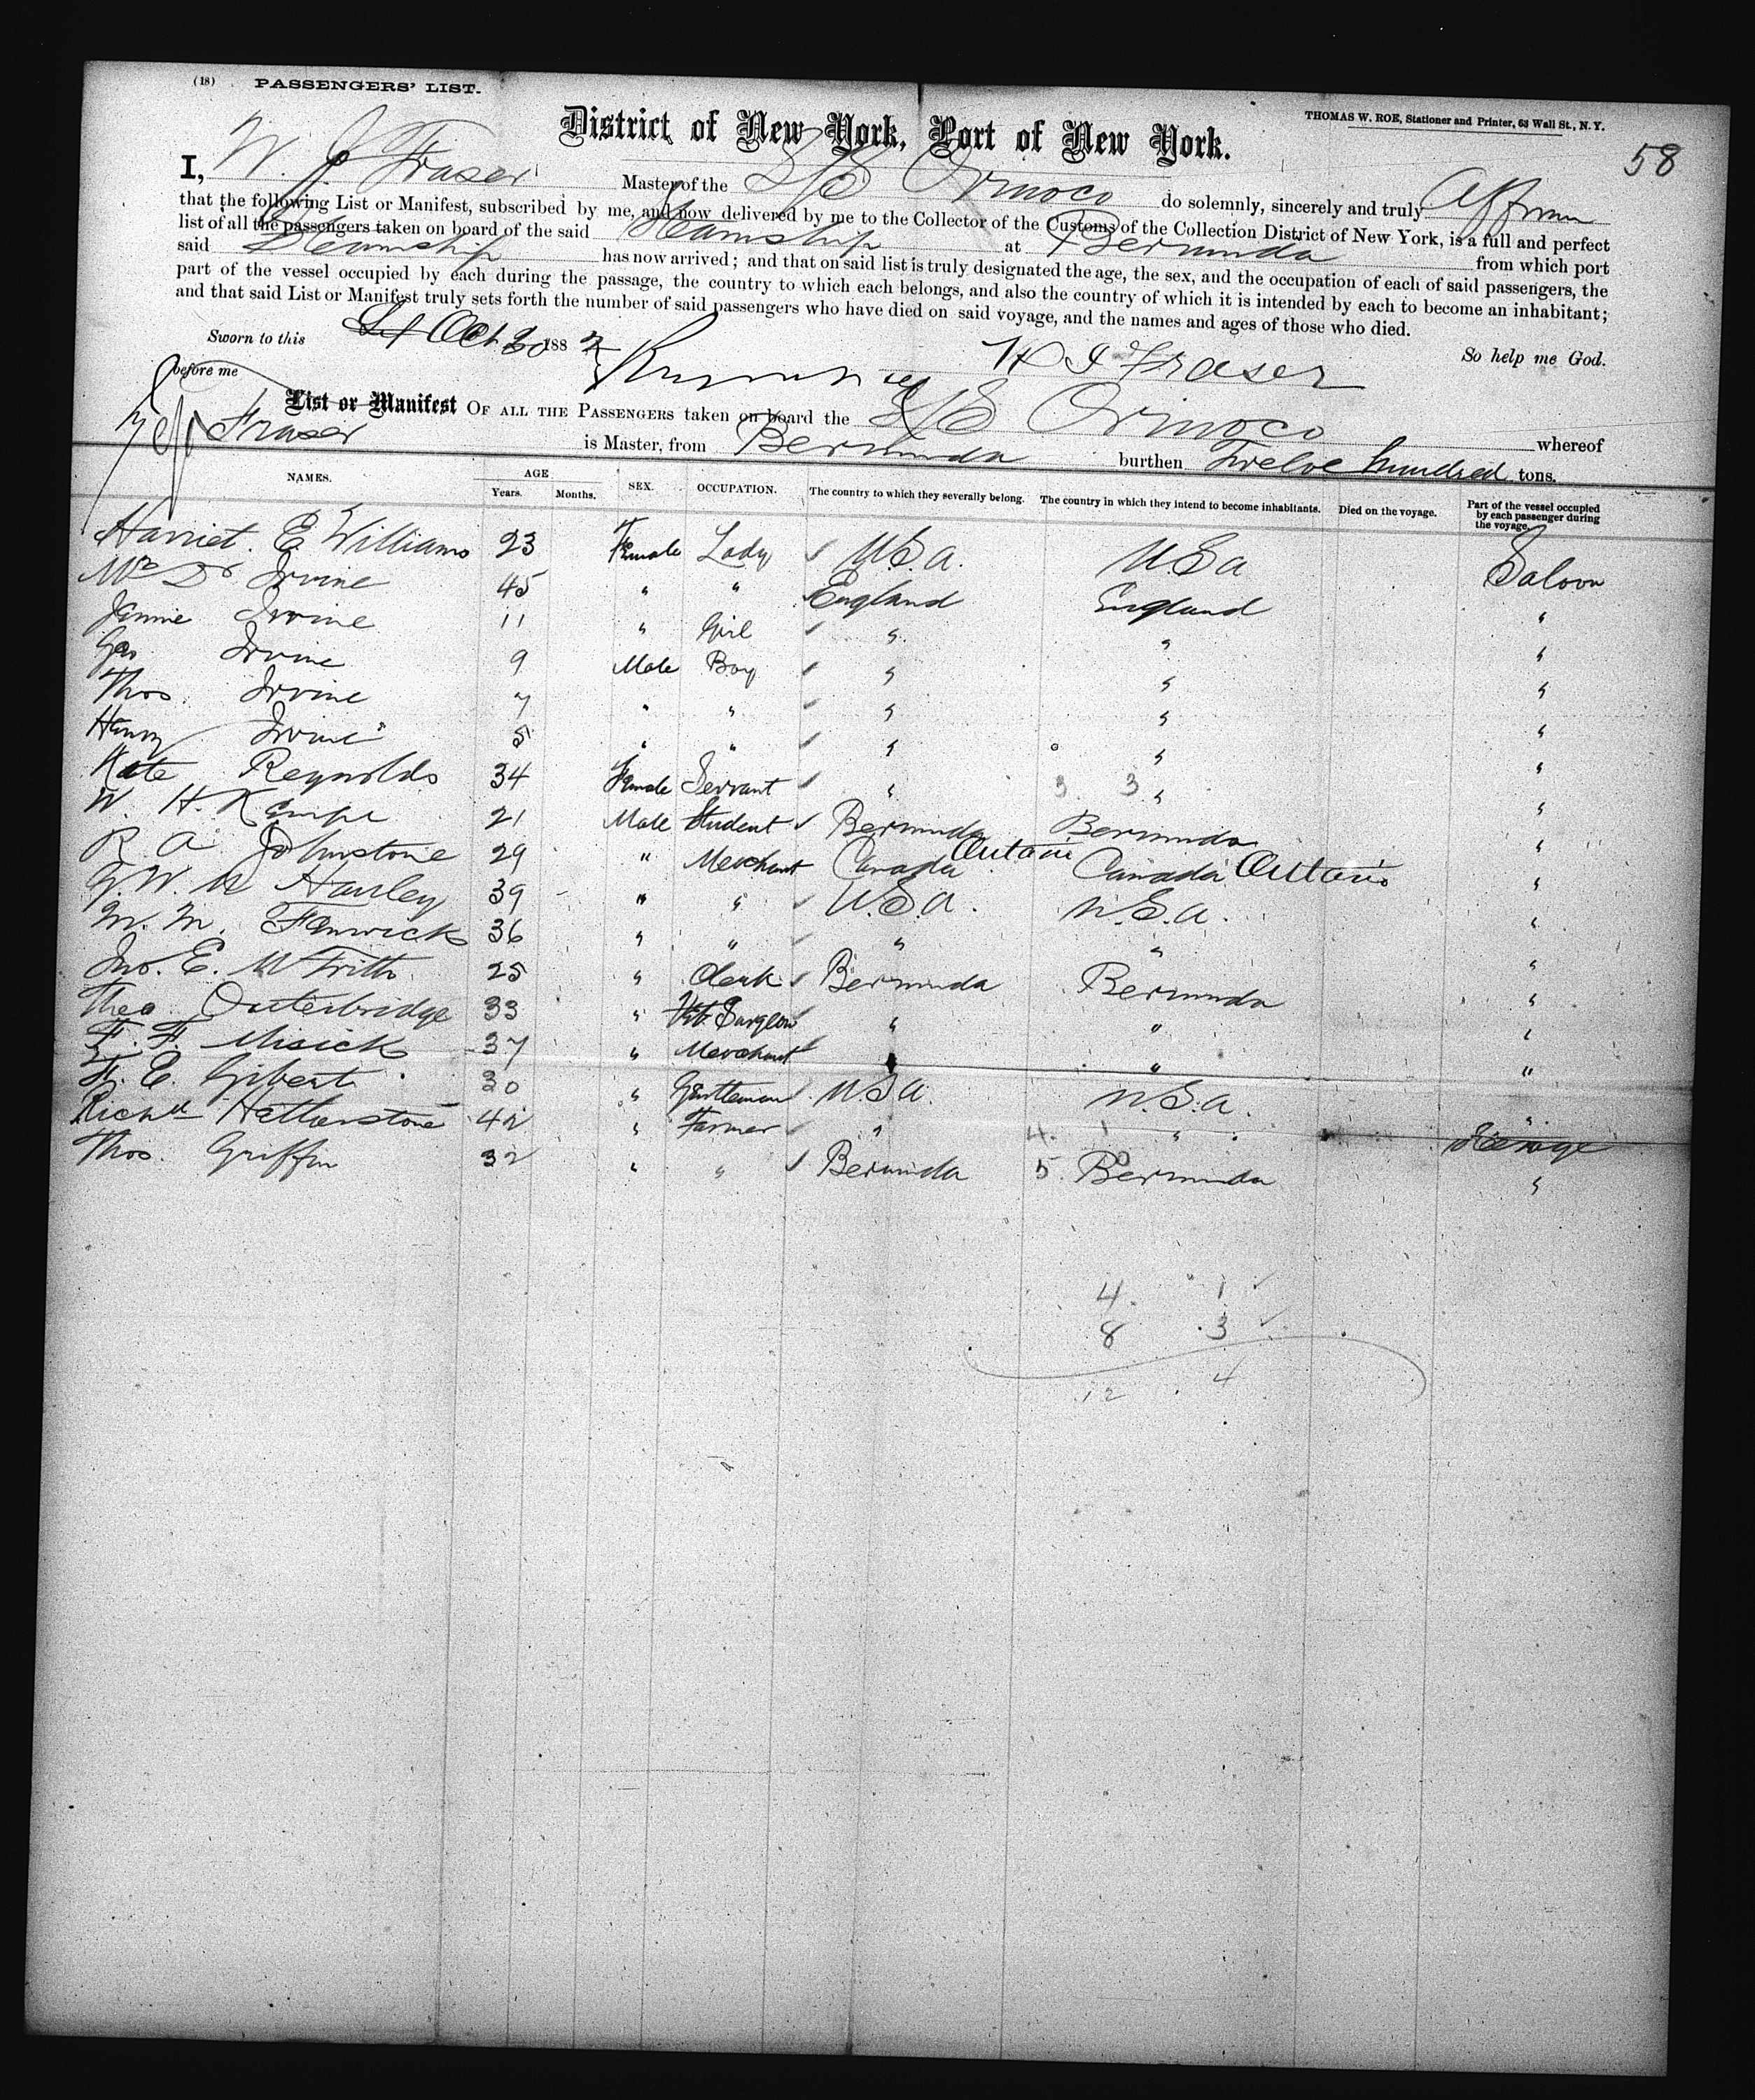 (18) PASSENGERS' LIST.
THOMAS W. ROE, Stationer and Printer, 63 Wall St., N. Y.
District of New York, Port of New York.
58
I, W. J. Fraser Master of the S/S Orinoco do solemnly, sincerely and truly affirm
that the following List or Manifest, subscribed by me, and now delivered by me to the Collector of the Customs of the Collection District of New York, is a full and perfect
list of all the passengers taken on board of the said Steamship at Bermuda from which port
said Steamship has now arrived; and that on said list is truly designated the age, the sex, and the occupation of each of said passengers, the
part of the vessel occupied by each during the passage, the country to which each belongs, and also the country of which it is intended by each to become an inhabitant;
and that said List or Manifest truly sets forth the number of said passengers who have died on said voyage, and the names and ages of those who died.
Sworn to this Oct 30 1882 So help me God.
before me W J Fraser
List or Manifest OF ALL THE PASSENGERS taken on board the S/S Orinoco whereof
Fraser is Master, from Bermuda burthen Twelve hundred tons.
NAMES. AGE Years. Months. SEX. OCCUPATION. The country to which they severally belong. The country in which they intend to become inhabitants. Died on the voyage. Part of the vessel occupied by each passenger during the voyage.
Harriet. E. Williams 23 Female Lady ✓ U.S.a. U.S.a Saloon
Mrs Dr Irvine 45 " " ✓ England England "
Jennie Irvine 11 " Girl ✓ " " "
Geo Irvine 9 Male Boy ✓ " " "
Thos. Irvine 7 " " ✓ " " "
Henry Irvine 5 " " ✓ " " "
Kate Reynolds 34 Female Servant ✓ " 3. 3 " "
W. H. Kempe 21 Male Student ✓ Bermuda Bermuda "
R. A. Johnstone 29 " Merchant Canada Ontario Canada Ontario "
39 " " ✓ U.S.a. U.S.a. "
M. M. Fenwick 36 " " ✓ " " "
Jno. E. W Frith 25 " Clerk ✓ Bermuda Bermuda "
Theo Outerbridge 33 " Vet. Surgeon " " "
F. F. Misick 37 " Merchant ✓ " " "
F. E. Gibert 30 " Gentleman ✓ U.S.a. U.S.a. "
Richd Hetherstone 42 " Farmer ✓ " 4. 1 " Steerage
Thos. Griffin 32 " " ✓ Bermuda 5. Bermuda "
4. 1 ✓
8 3 ✓
12 4